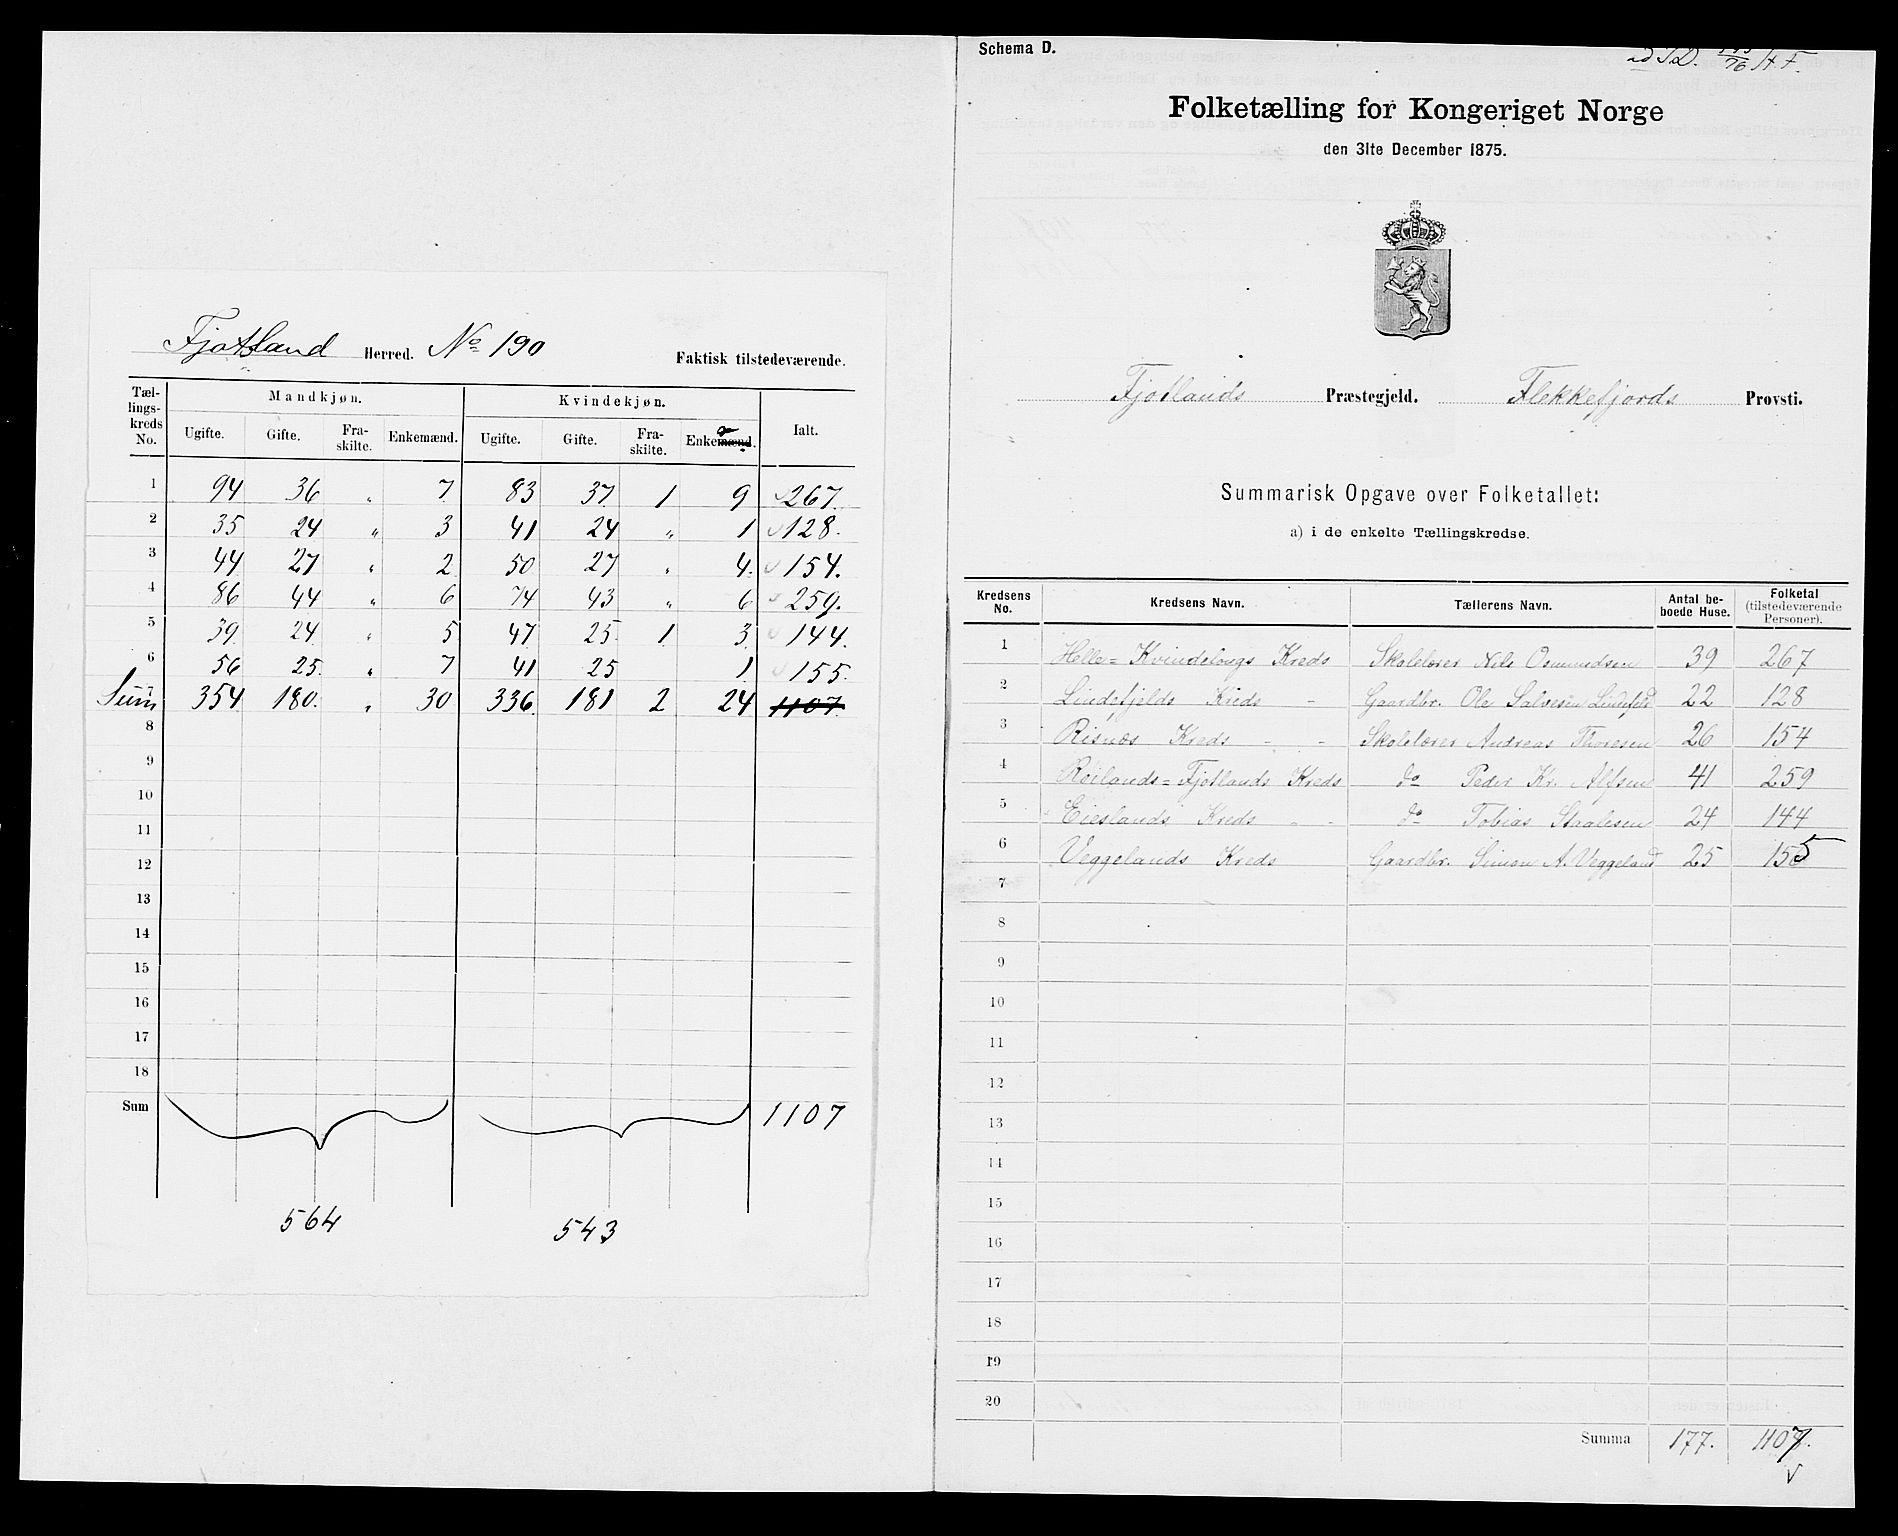 Fjotland Herred. No 190 Faktisk tilstedeværende.
Tæl-lings-kreds No. Mandkjøn. Kvindekjøn. Ialt.
Ugifte. Gifte. Fra-skilte. Enkemænd. Ugifte. Gifte. Fra-skilte. Enkemænd.
1 94 36 " 7 83 37 1 9 267.
2 35 24 " 3 41 24 " 1 128.
3 44 27 " 2 50 27 " 4. 154.
4 86 44 " 6 74 43 " 6 259.
5 39 24 " 5 47 25 1 3 144.
6 56 25 " 7 41 25 1 155.
7 Sum 354 180. " 30 336 181 2 24 1107
8
9
10
11
12
13
14
15
16
17
18
Sum 1107
564 543
Schema D.
Folketælling for Kongeriget Norge
den 31te December 1875.
Fjotlands Præstegjeld. Flekkefjords Provsti.
Summarisk Opgave over Folketallet:
a) i de enkelte Tællingskredse.
Kredsens No. Kredsens Navn. Tællerens Navn. Antal be-boede Huse. Folketal (tilstedeværende Personer).
1 Helle= Kvindelongs Kreds Skolelærer Nels Osmundsen 39 267
2 Lindefjelds Kreds - Gaardbr. Ole Salvesen Lindefjeld 22 128
3 Risnæs Kreds - - Skolelærer Andreas Thoresen 26 154
4 Røilands= Fjotlands Kreds do Peder Kr. Alfsen 41 259
5 Eieslands Kreds - - do Tobias Staalesen 24 144
6 Veggelands Kreds Gaardbr. Simon A. Veggeland 25 155
7
8
9
10
11
12
13
14
15
16
17
18
19
20
Summa 177. 1107.